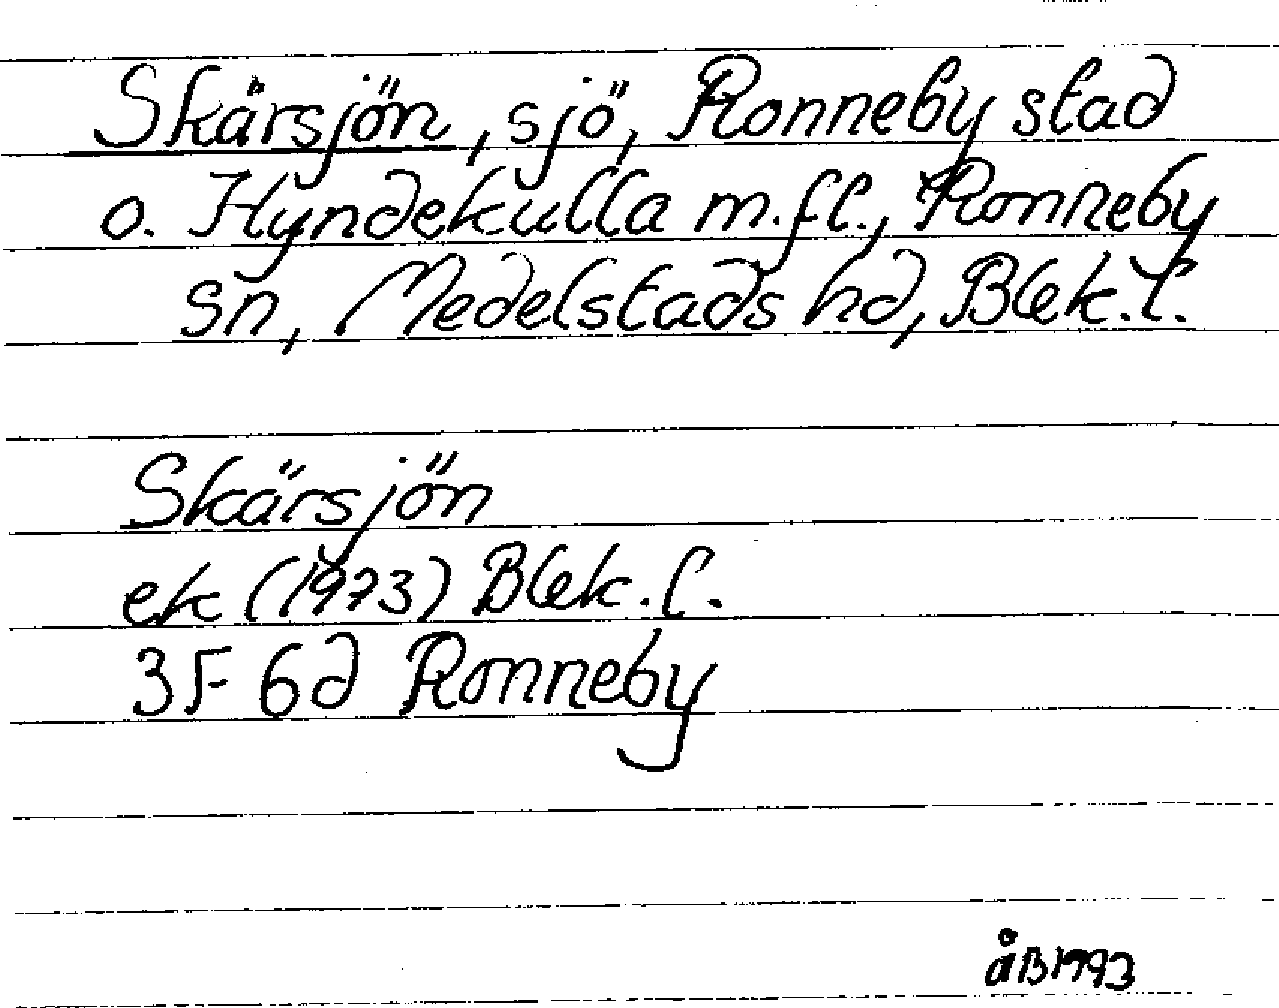 Skärsjön, sjö, Ronneby stad
o. Hyndekulla m.fl., Ronneby
sn, Medelstads hd, Blek.l.
Skärsjön
ek (1973) Blek.l.
3F 6d Ronneby
åB 1993